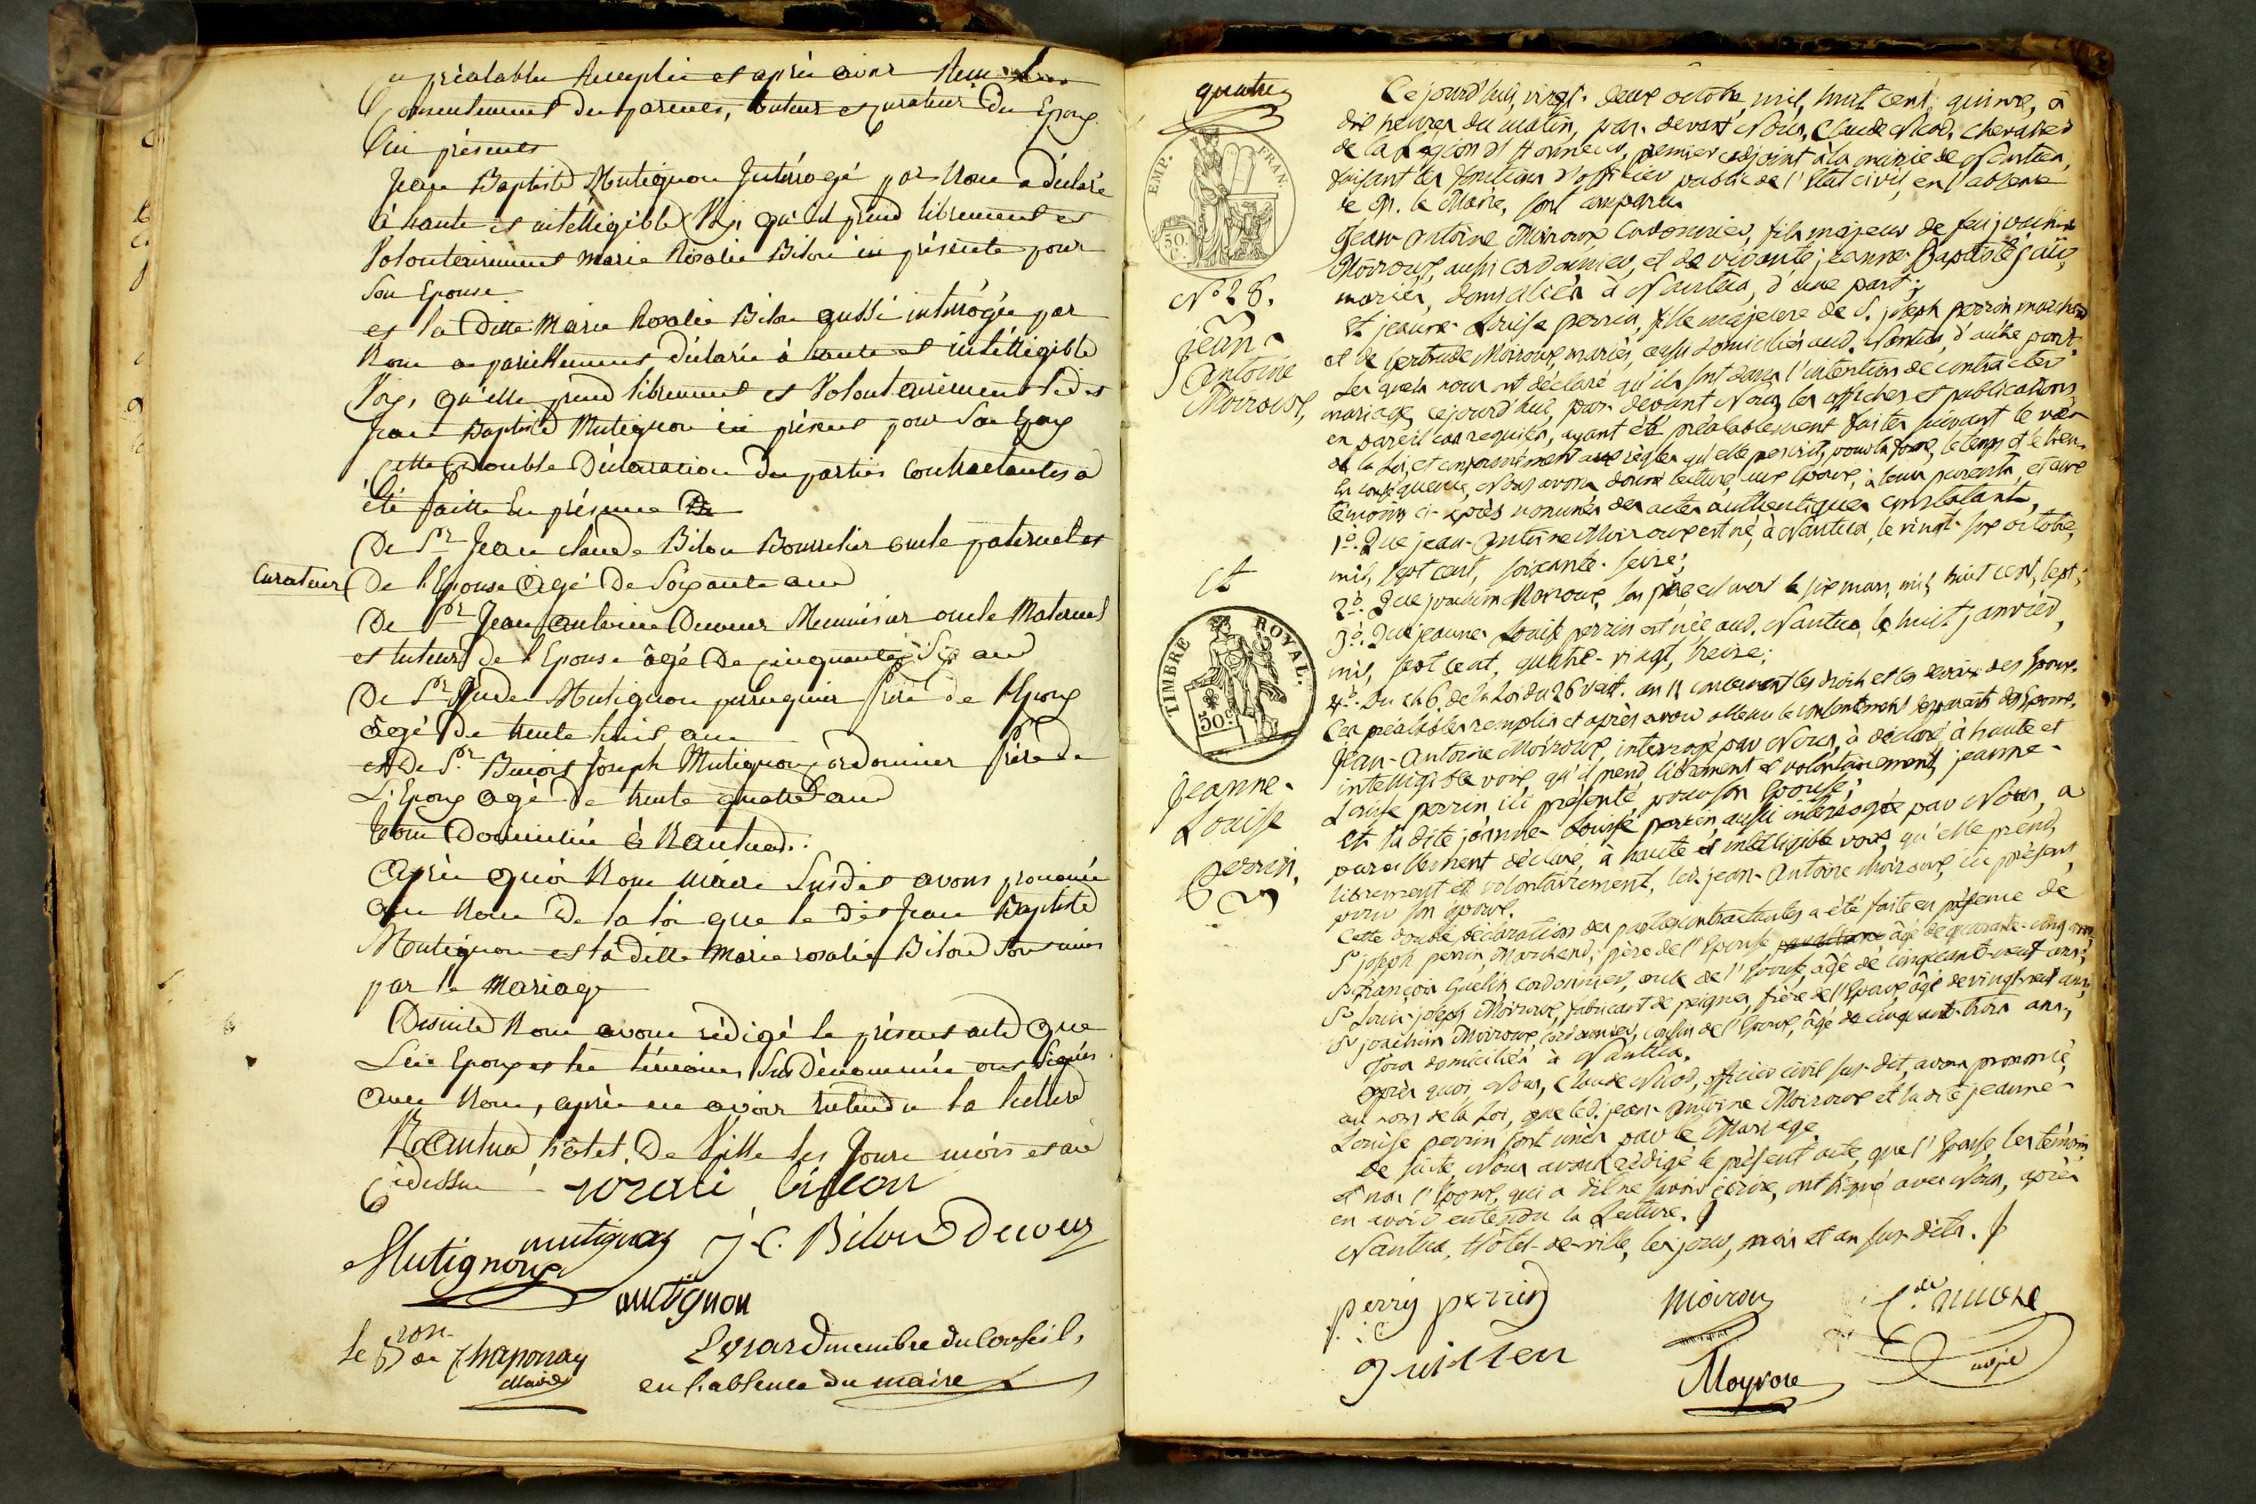 préalables Remplie et après avoir
Consentement des parents, tuteur et curateur Du Epoux
Cui présents
Jean Baptiste Mutignon Intérrogé par Nous a déclaré
à haute et intélligible Voix, qu'il prend librement et
Volontairement Marie Rosalie Bilon ici présente pour
Son Epouse
et la ditte Marie Rosalie Bilon aussi intérrogée par
Nous a pareillement déclarée à haute et intélligible
Voix, qu'elle prend librement et Volontairement ledit
Jean Baptiste Mutignon ici présent pour Son Epoux
Cette Double Déclaration des parties Contractantes a
été faitte En présence De
De Sr Jean Claude Bilon Bourrelier oncle paternel et
Curateur De l'Epouse âgé De Soixante ans
De Sr Jean Antoine Decoeur Menuisier oncle Maternel
et tuteur de l'Epouse âgé De Cinquante Six ans
De Sr Mutignon perruquier frère de l'Epoux
âgé De trente huit ans
et De Sr Benoit Joseph Mutignon cordonnier frère de
L'Epoux agé de trente quatre ans
tous Domiciliés à Nantua.
Après quoi Nous Maire Susdit avons prononcé
au Nom De la loi que le dit Jean Baptiste
Mutignon et la ditte Marie rosalie Bilon Sont unis
par le Mariage
Desuite Nous avons rédigé le présent acte que
Les Epoux et les témoins Susdénommés ont Signés
avec Nous, après en avoir entendu la lecture
Nantua hôtel De Ville les Jour mois et an
Cidessus rozali bilon
Mutignon mutignon J C. Bilon Decoeur
mutignon
le Bon de Chaponay
Maire
membre du Conseil,
en l'absence du maire
quatre
EMP. FRAN.
50. C.
N° 28.
jean
Antoine
Moiroux,
et
TIMBRE ROYAL.
50 c
Jeanne-
Louise
perrin.
Cejourd'hui, vingt-deux octobre, mil, huit cent, quinze, à
dix heures du matin, par-devant Nous, Claude Nicod, chevalier
de la Légion d'Honneur, premier adjoint à la mairie de Nantua,
faisant les fonctions d'officier public de l'Etat civil, en l'absence
de M. le Maire, sont comparus
Jean-Antoine Moiroux, Cordonnier, fils majeur de feu joachim
Moiroux, aussi cordonnier, et de vivante jeanne-Baptiste
mariés, domiciliés à Nantua, d'une part;
Et jeanne-Louise perrin, fille majeure de S. joseph perrin marchand
et de Gertrude Moiroux, mariés, aussi domiciliés aud. Nantua, d'autre part.
Lesquels nous ont déclaré qu'ils sont dans l'intention de contracter
mariage, cejourd'hui, par-devant Nous, les affiches et publications
en pareil cas requises, ayant été préalablement faites suivant le vœu
de la Loi, et conformément aux règles qu'elle prescrit, pour la forme, le temps et le lieu.
En conséquence, Nous avons donné lecture, aux Epoux, à leurs parents, et aux
témoins ci-après nommés des actes authentiques constatant,
1°. Que jean-Antoine Moiroux est né, à Nantua, le vingt-six octobre,
mil, sept cent, soixante-seize;
2°. Que joachim Moiroux, son père, est mort le six mars, mil, huit cent, sept;
3°. Que jeanne-Louise perrin est née aud. Nantua, le huit janvier,
mil, sept cent, quatre-vingt, treize;
4°. Du ch. 6. de la Loi du 26 vent. an 11 concernant les droits et les devoirs des Epoux.
Ces préalables remplis et après avoir obtenu le consentement des parents des Epoux,
Jean-Antoine Moiroux, interrogé par Nous, à déclaré à haute et
intelligible voix, qu'il prend, librement et volontairement, jeanne-
Louise perrin, ici présente, pour son Epouse;
et la dite jeanne-Louise perrin aussi interrogée par Nous, a
pareillement déclaré, à haute et intelligible voix, qu'elle prend,
librement et volontairement, led. jean-Antoine Moiroux, ici présent,
pour son époux.
Cette double déclaration des parties contractantes a été faite en présence de
Sr joseph perrin, Marchand, père de l'Epouse, âgé de quarante-cinq ans,
Sr François Guelin, cordonnier, oncle de l'Epouse, âgé de cinquante-neuf ans,
Sr Louis-joseph Moiroux, fabricant de peignes, frère de l'Epoux, âgé de vingt-neuf ans,
Sr joachim Moiroux, cordonnier, cousin de l'Epoux, âgé de cinquante-trois ans,
Tous domiciliés à Nantua.
Après quoi, Nous, Claude Nicod, officier civil sus-dit, avons prononcé,
au nom de la Loi, que led. jean-Antoine Moiroux et la dite jeanne-
Louise perrin sont unis par le Mariage.
De suite Nous avons rédigé le présent acte, que l'Epouse, les témoins
et non l'Epoux, qui a dit ne savoir écrire, ont signé avec Nous, après
en avoir entendu la Lecture.
Nantua, Hôtel-de-ville, les jour, mois et an sus-dits.
perrin perrin moiroux
Moyroux